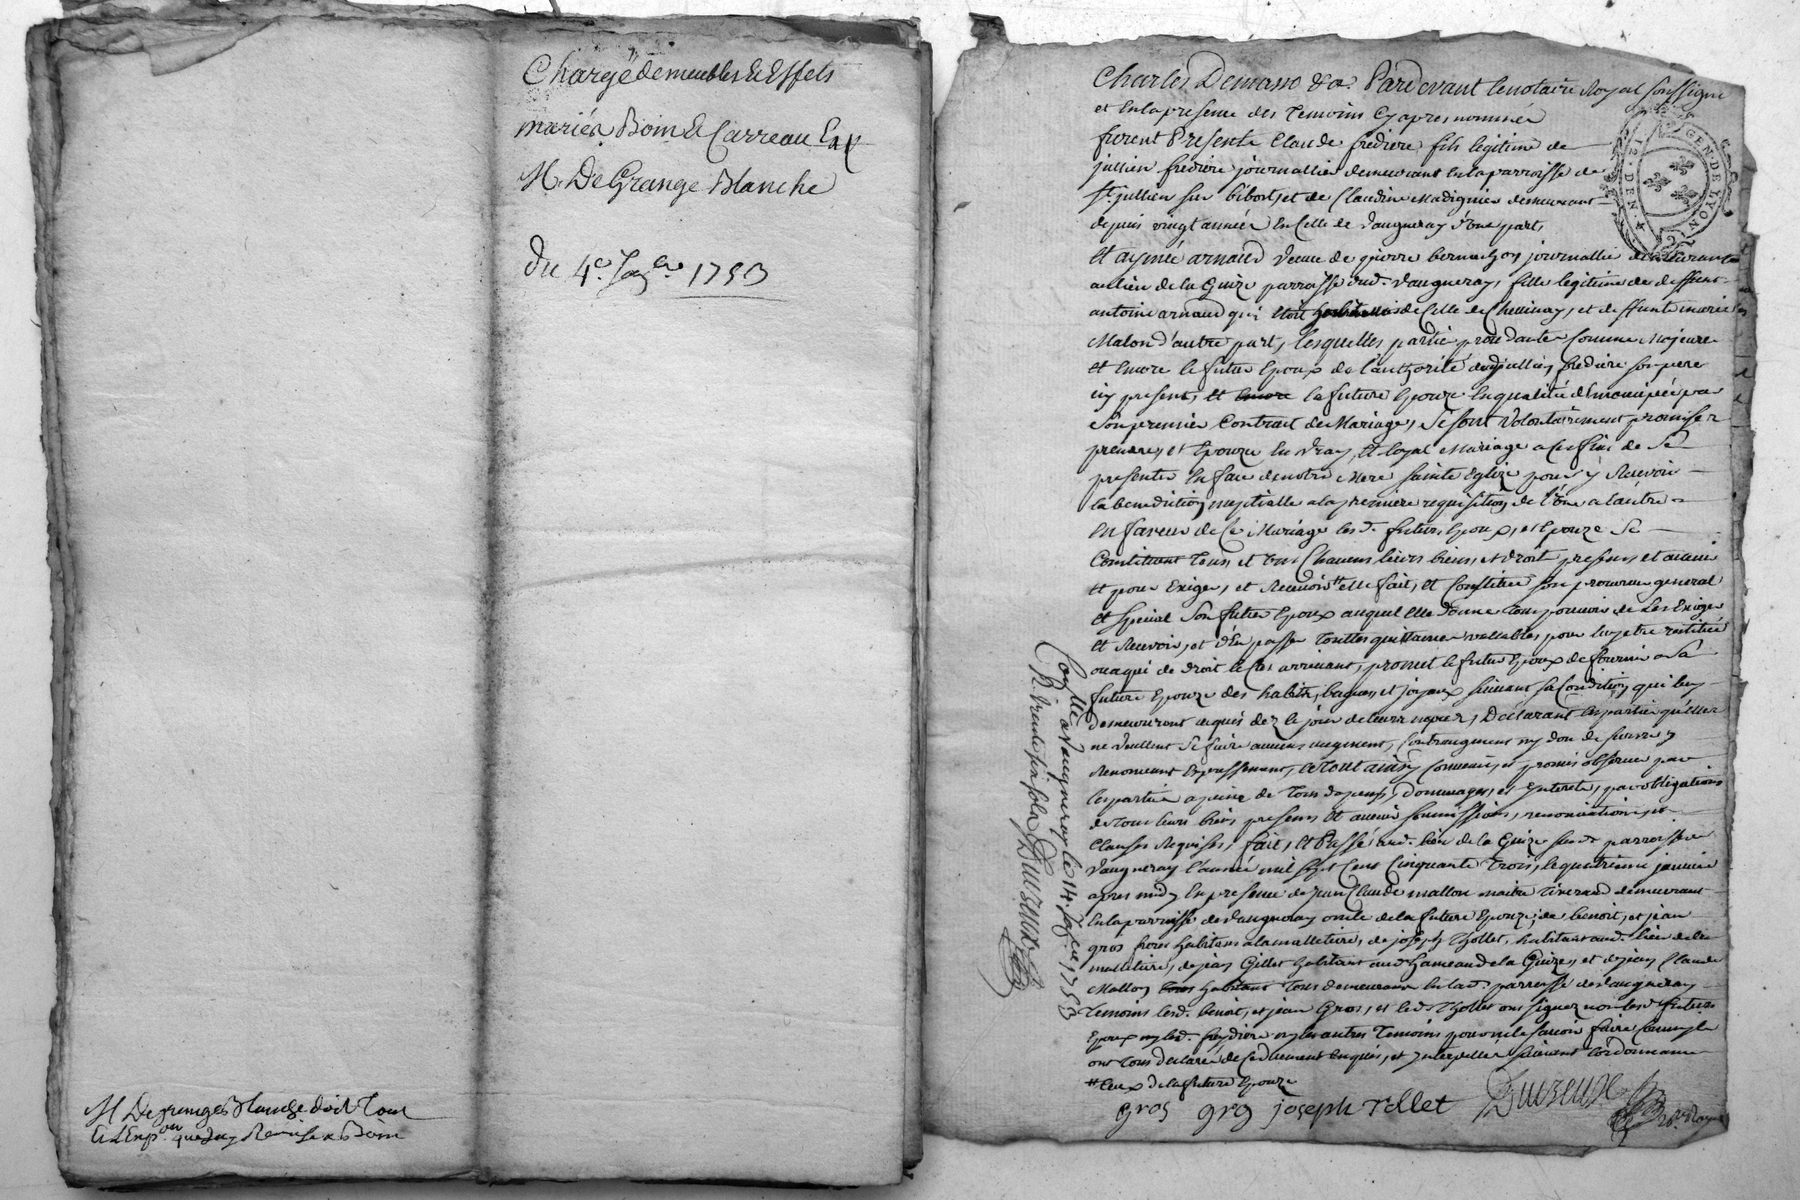 Chargé de meubles & Effets
mariés Boin & Carreau En
M. De Grange Blanche
du 4e. Janer. 1753
M Degrange Blanche doit Tout
Charles Demasso &a. Pardevant le notaire Royal soussigné
et en la presence des Temoins Cy apres nommés
furent Presents Claude frediere fils legitime de
jullien fredire journallier demeurant en la parroisse de
St. jullien sur bibost, et de Claudine Madignier demeurant
depuis vingt années en Celle de Vaugneray d'une part,
Et aymée arnaud veuve de pierre bernachon journallier demeurante
au lieu de la Guize parroisse dud. Vaugneray, fille legitime de deffunt
antoine arnaud qui de Celle de Chevinay, et deffunte marie
Malon d'autre part, lesquelles partie procedantes Comme Majeure
et Encore le futur Epoux de l'authorité dud jullien fredire son pere
icy present, et la future Epouze En qualité d'Emancipée par
son premier Contrat de Mariage, Se sont Volontairement promis se
prendre, et Epouzer En Vray, et loyal Mariage a Ces fins de Se
presenter En face de notre Mere Sainte Eglize pour y Recevoir
la benediction nuptialle a la premiere requisition de l'Un a lautre
En faveur de Ce Mariage les d. futurs Epoux, et Epouze Se
Constituent Tous et Uns Chacuns leurs biens, et droits presents et avenir
et pour Exiger, et Recevoir # elle fait, et Constitue Son procureur general
et Special Son futur Epoux auquel Elle donne Tout pouvoir de Les Exiger
et Recevoir, et d'En passer Touttes quittances vallables pour luy etre restitué
ou a qui de droit le Cas arrivant, promet le futur Epoux de fournir a Sa
future Epouze des habits, bagues, et joyaux suivant sa Condition, qui luy
demeureront acquis dez le jour de leurs noces, Declarant les partie qu'elles
ne Veullent Se faire aucuns augment, Contraugment ny don de Survie y
Renonceant Expressement, Le Tout ainsy Convenu, et promis observer par
les partie a peine de Tous depens, dommages, et Interets, par obligations
de Tous leurs biens presents et avenir Soumissions, renonciations, et
Clauses Requises, fait, et Passé aud. lieu de la Guize susd. parroisse de
Vaugneray l'année mil Sept Cent Cinquante Trois, le quatrieme janvier
apres midy En presence de jean Claude mallon maitre Tixerand demeurant
En la parroisse de Vaugneray oncle de la future Epouze, de benoit, et jean
gros freres habitans a la malletiere, de joseph Thollet, habitant aud. lieu de la
malletiere, de jean Gillet habitant aud hameau de la Guize, et de jean Claude
Mallon Tous demeurant En lad. parroisse de Vaugneray
Temoins lesd. benoit, et jean Gros, et led. Thollet ont signez non lesd. futurs
Epoux ny led. freydire ny les autres Temoins pour ne le Savoir faire
ont Tous declaré de Ce duement Enquis, et Interpellés suivant lordonnance
# Ceux de la future Epouze
gros gros joseph Tollet
Conlle a Vaugneray le 14. Janer. 1753
GEN. DE LYON
12. DEN.